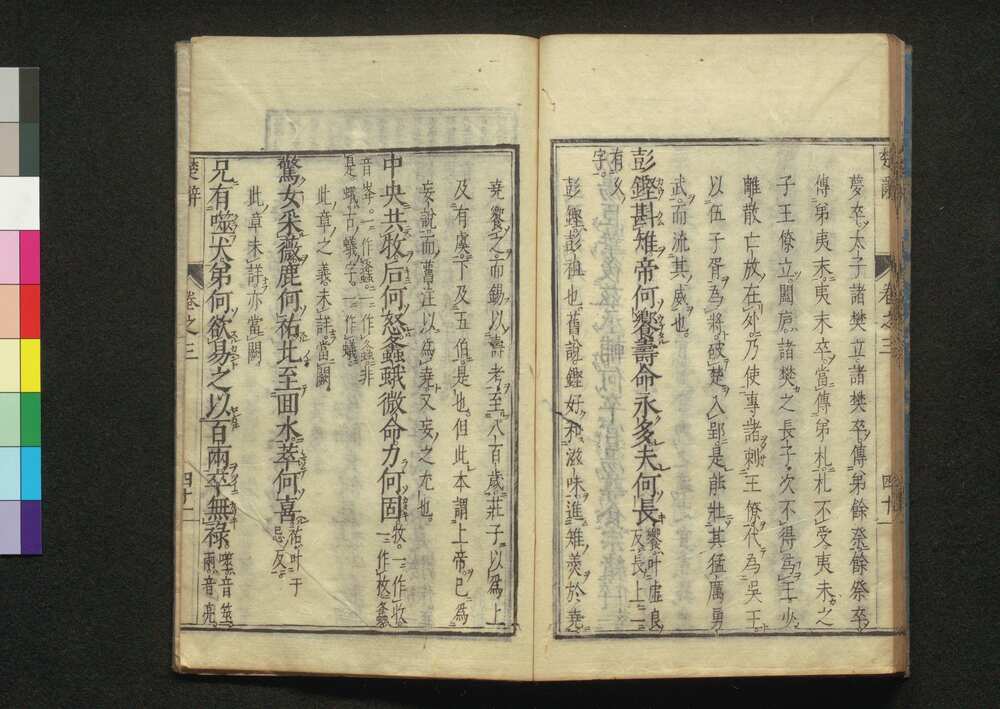 楚辭 卷之三 四十一
夢卒太子諸樊立諸樊卒傳弟餘祭餘祭卒
傳弟夷末夷末卒當傳弟札札不受夷末之
子王僚立闔廬諸樊之長子次不得爲王少
離散亡放在外乃使專諸刺王僚代爲吳王
以伍子胥爲將破楚入郢是能壯其猛厲勇
武而流其威也
彭鏗斟雉帝何饗壽命永多夫何長饗叶虛良反長上一
有久字
彭鏗彭祖也舊說鏗好和滋味進雉羹於堯
堯饗之而錫以壽考至八百歲莊子以爲上
及有虞下及五伯是也但此本謂上帝已爲
妄說而舊注以爲堯又妄之尤也
中央共牧后何怒蠭蛾微命力何固牧一作收一作枚蠭
音峯一作螽一作蚤非是蛾古蟻字一作蟻
此章之義未詳當闕
驚女采薇鹿何祐北至回水萃何喜祐叶于忌反
此章未詳亦當闕
兄有噬犬弟何欲易之以百兩卒無祿噬音筮兩音亮
楚辭 卷之三 四十二